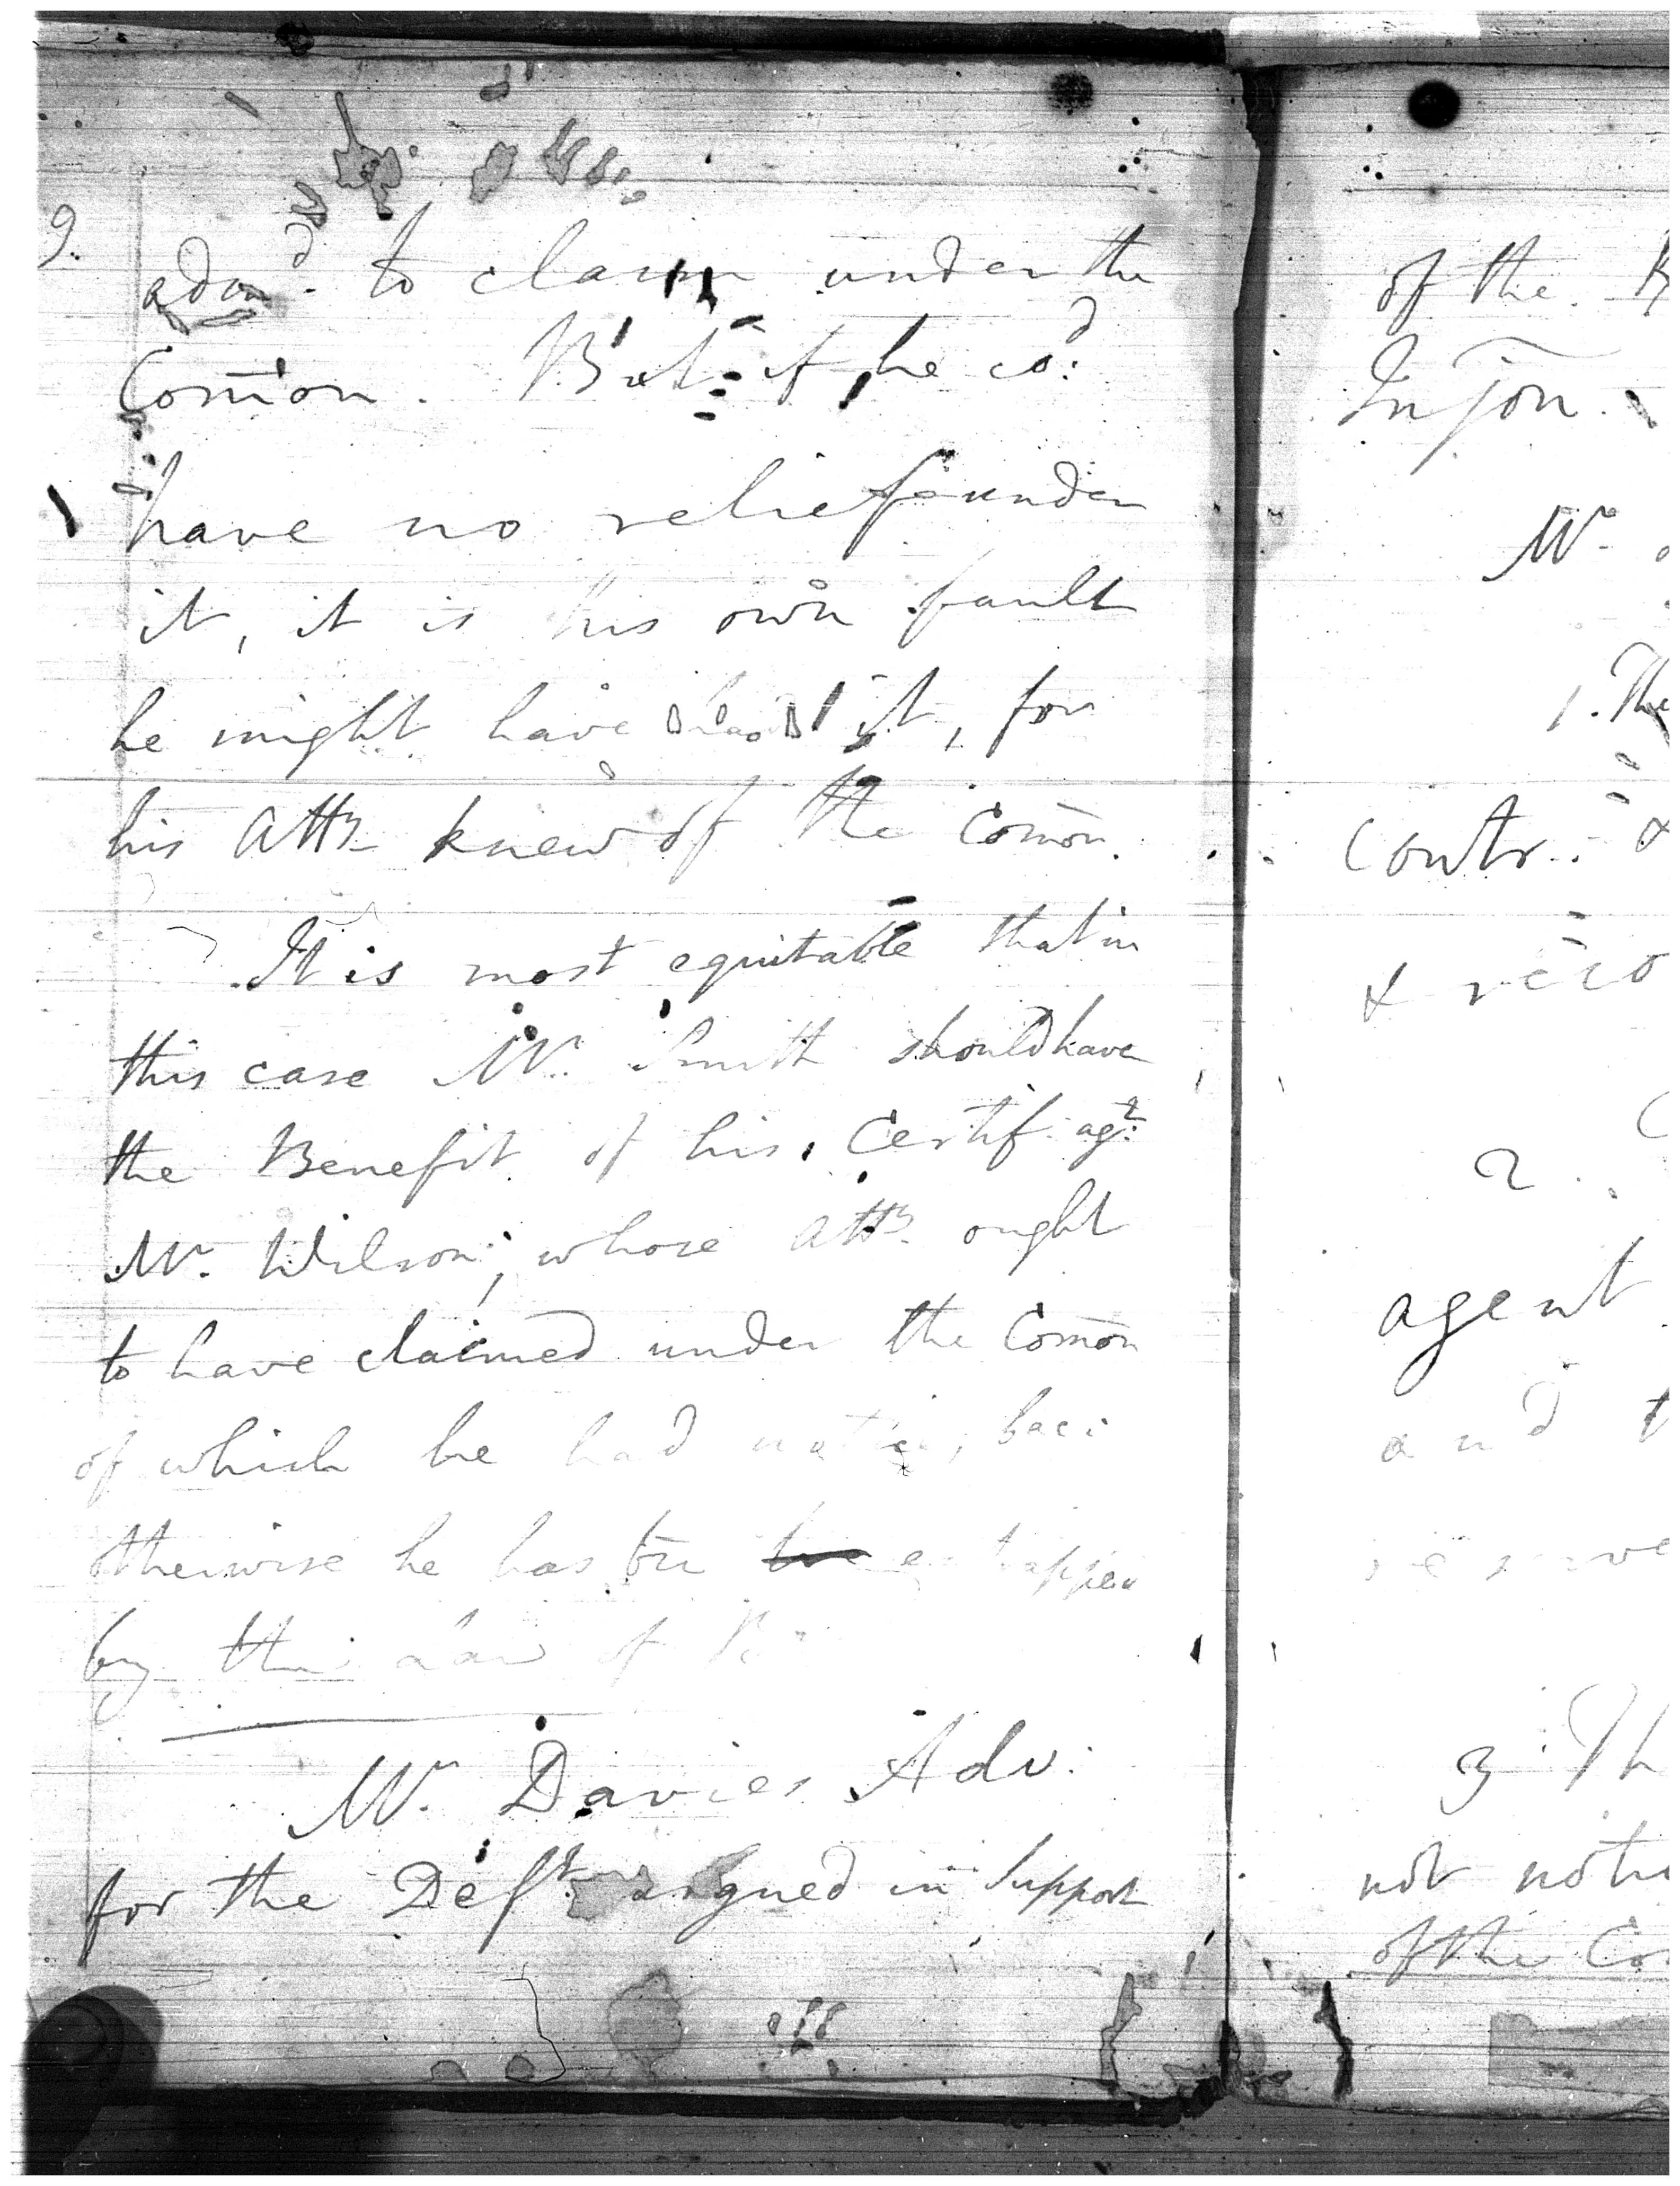 9.
to claim under the
Com̄on. But if he co:d
have no relief under
it, it is his own fault
he might have had it, for
his Atty knew of the Com̄on.
It is most equitable that in
this case Mr. Smith should have
the Benefit of his Certif. agt.
Mr. Wilson; whose Atty ought
to have claimed under the Com̄on
of which he had notice,
otherwise he has be̅n
by the law of
Mr. Davies Adv:
for the Deft. argued in Support
of the
Injon.
Mr.
1. The
Contr.
&
2.
agent
and
3. Th
not
of the